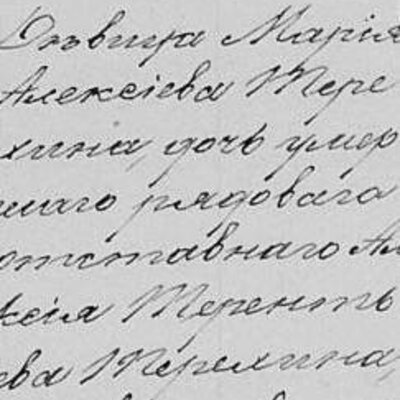 Дѣвица Марія
Алексіева Тере
хина, дочь умер
шаго рядоваго
отставнаго Ал
ксія Теренть
ева Терехина,